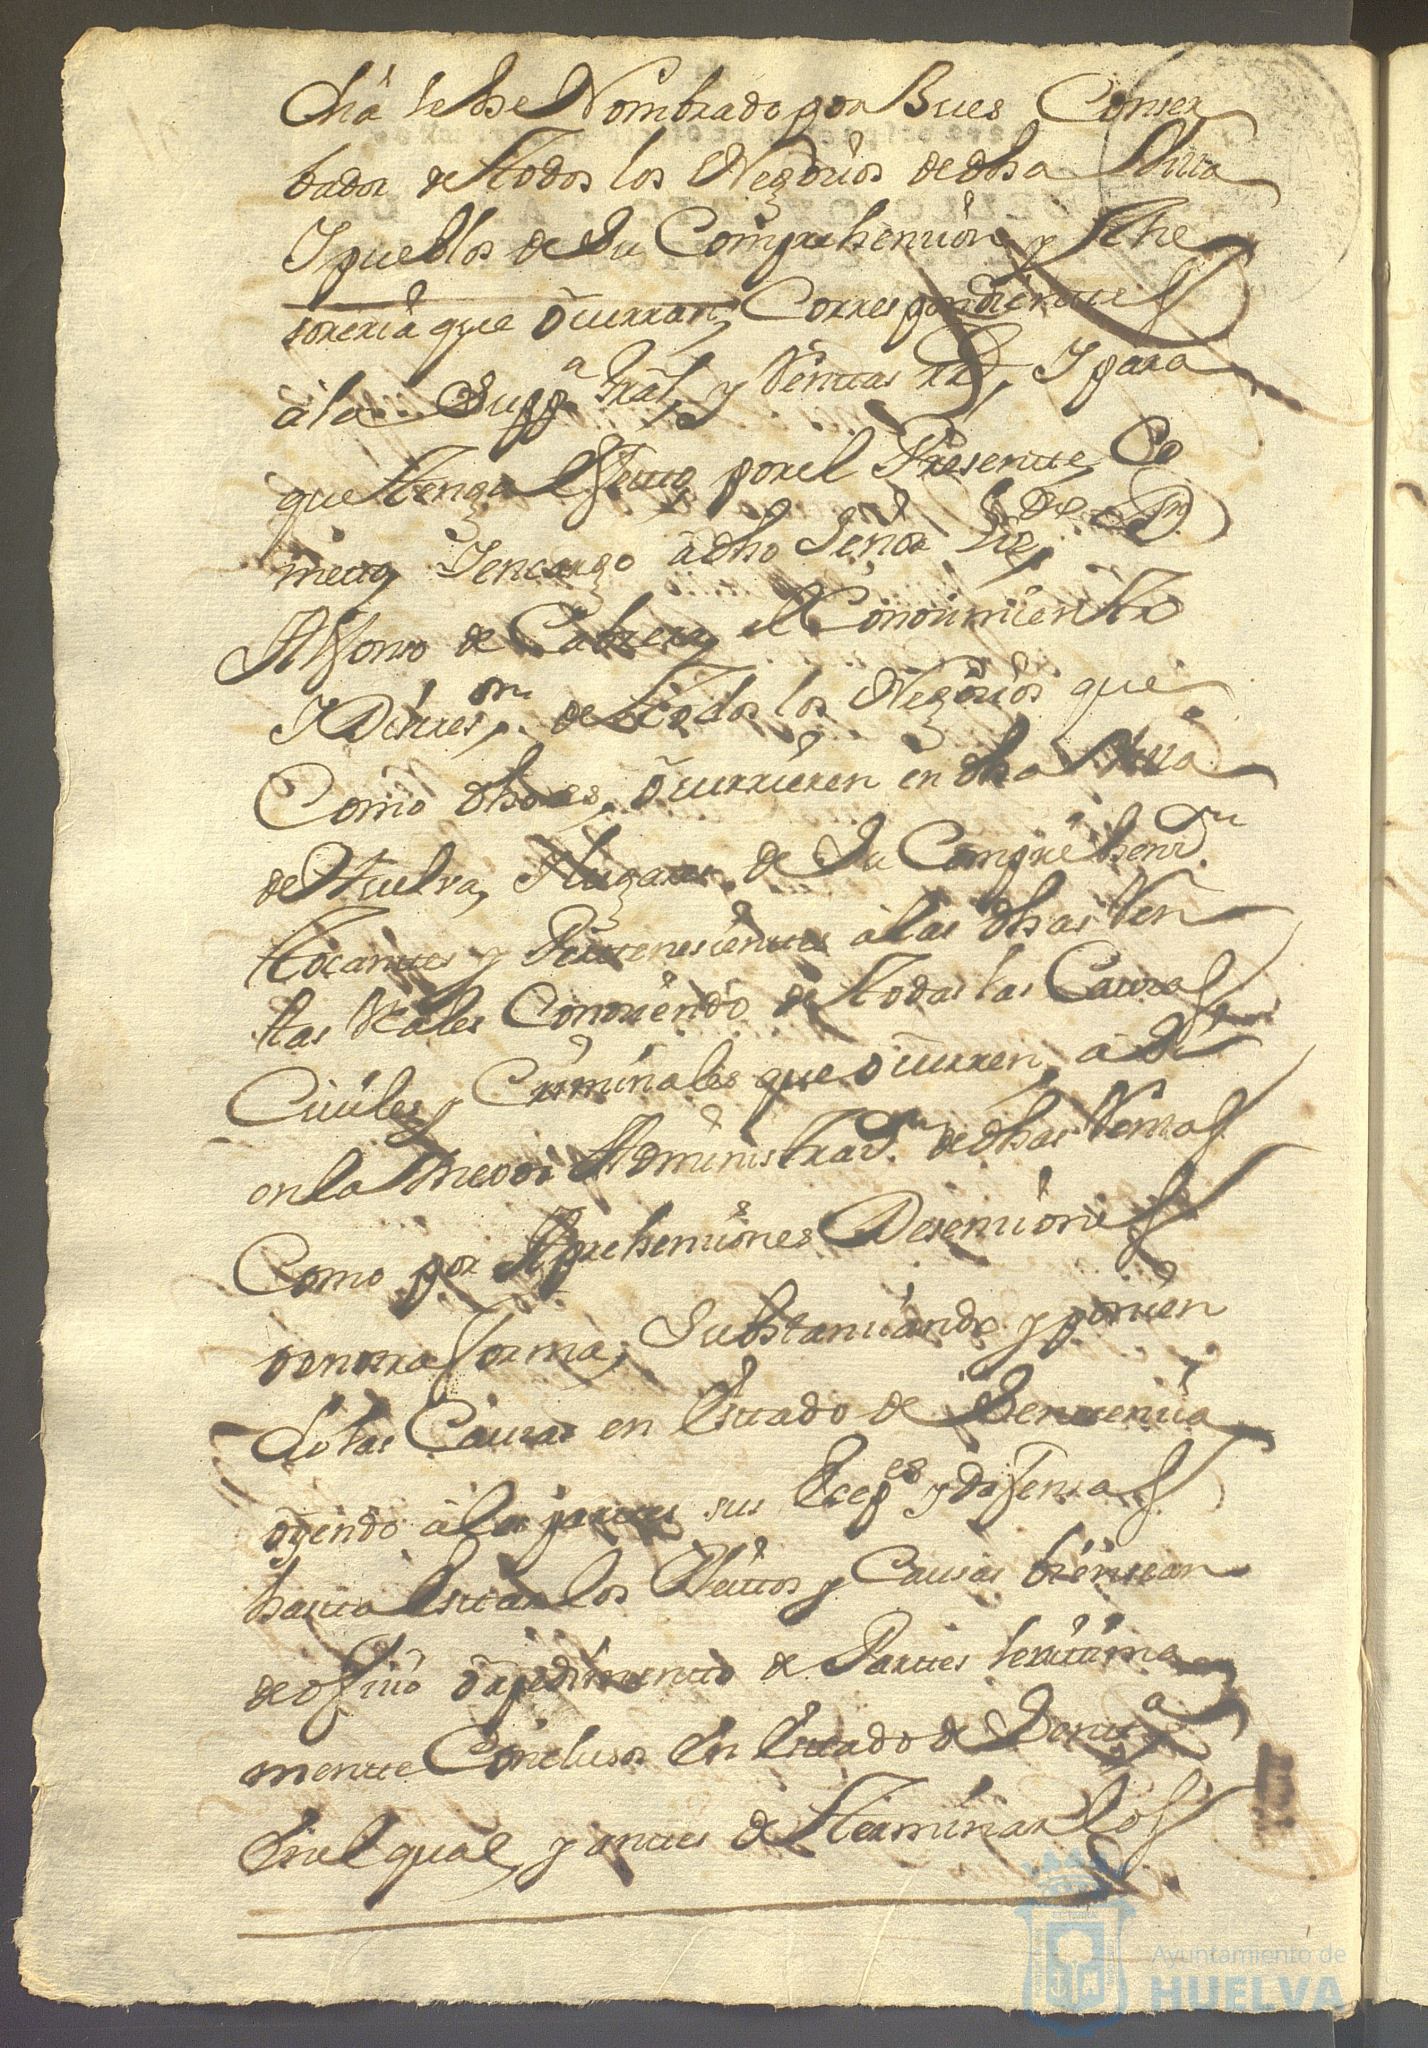 cha le he Nombrado por Jues Conser
bador de todos los Negocios de dha Villa
I pueblos de su Comprehencion y The
soreria que ocurran Correspondientes
a la Supp.ª Gral, y Rentas Rs, I para
que tenga efecto, por el Presente Co
meto, I encargo a dho Señor Liz.do Dn
Alfonso de Cabrera, el Conocimiento
I Direcs.on de todos los Negocios que
Como dho es, ocurrieren en dha Villa
de Huelva, I lugares de su Comprehenc.n
tocantes y Pertenescientes a las dhas Ren
tas Reales Conociendo de todas las Causas
Civiles y Criminales que ocurren, a Si
en la mexor Administrac.n de dhas Rentas
Como por Aprehenciones Detenciones
o en otra forma, Substanciando y ponien
do las Causas en Estado de Sentencia
oyendo a las partes sus Ecep.es y defensas
hasta estar los Pleitos y Causas bien sean
de oficio o a pedimento de Partes lexitima
mente Conclusos En Estado de Sent.ª
En el qual, y antes de terminarlos
Ayuntamiento de
HUELVA